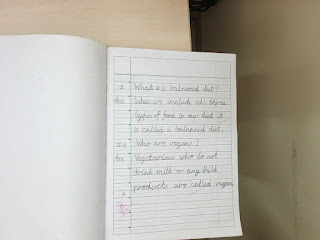 2. What is a balanced diet?
Ans When we include all three
types of food in our diet it
is called a balanced diet.
Who are vegans?
Ans Vegetarians who do not
drink milk or any milk
products are called vegans